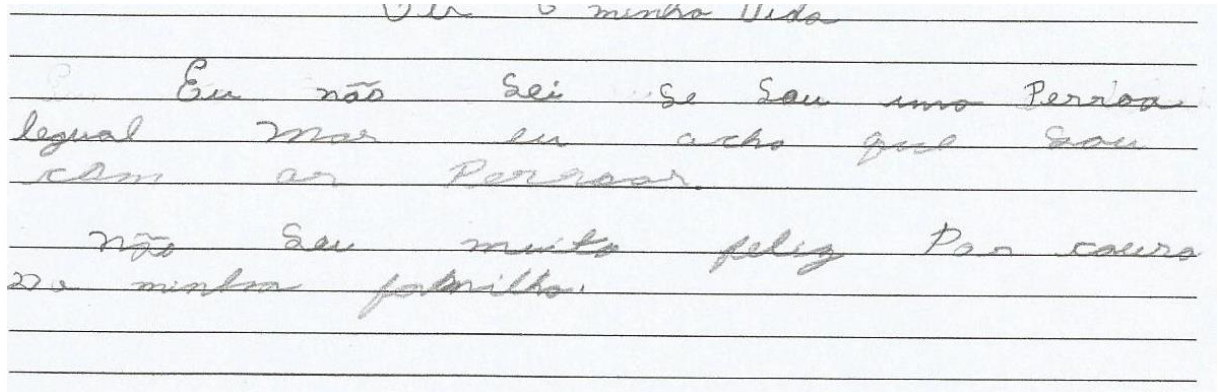 Ver a minha Vida
Eu não sei se sou uma Pessoa
legual mas eu acho que sou
com as Pessoas.
não sou muito feliz Por causa
De minha familha.